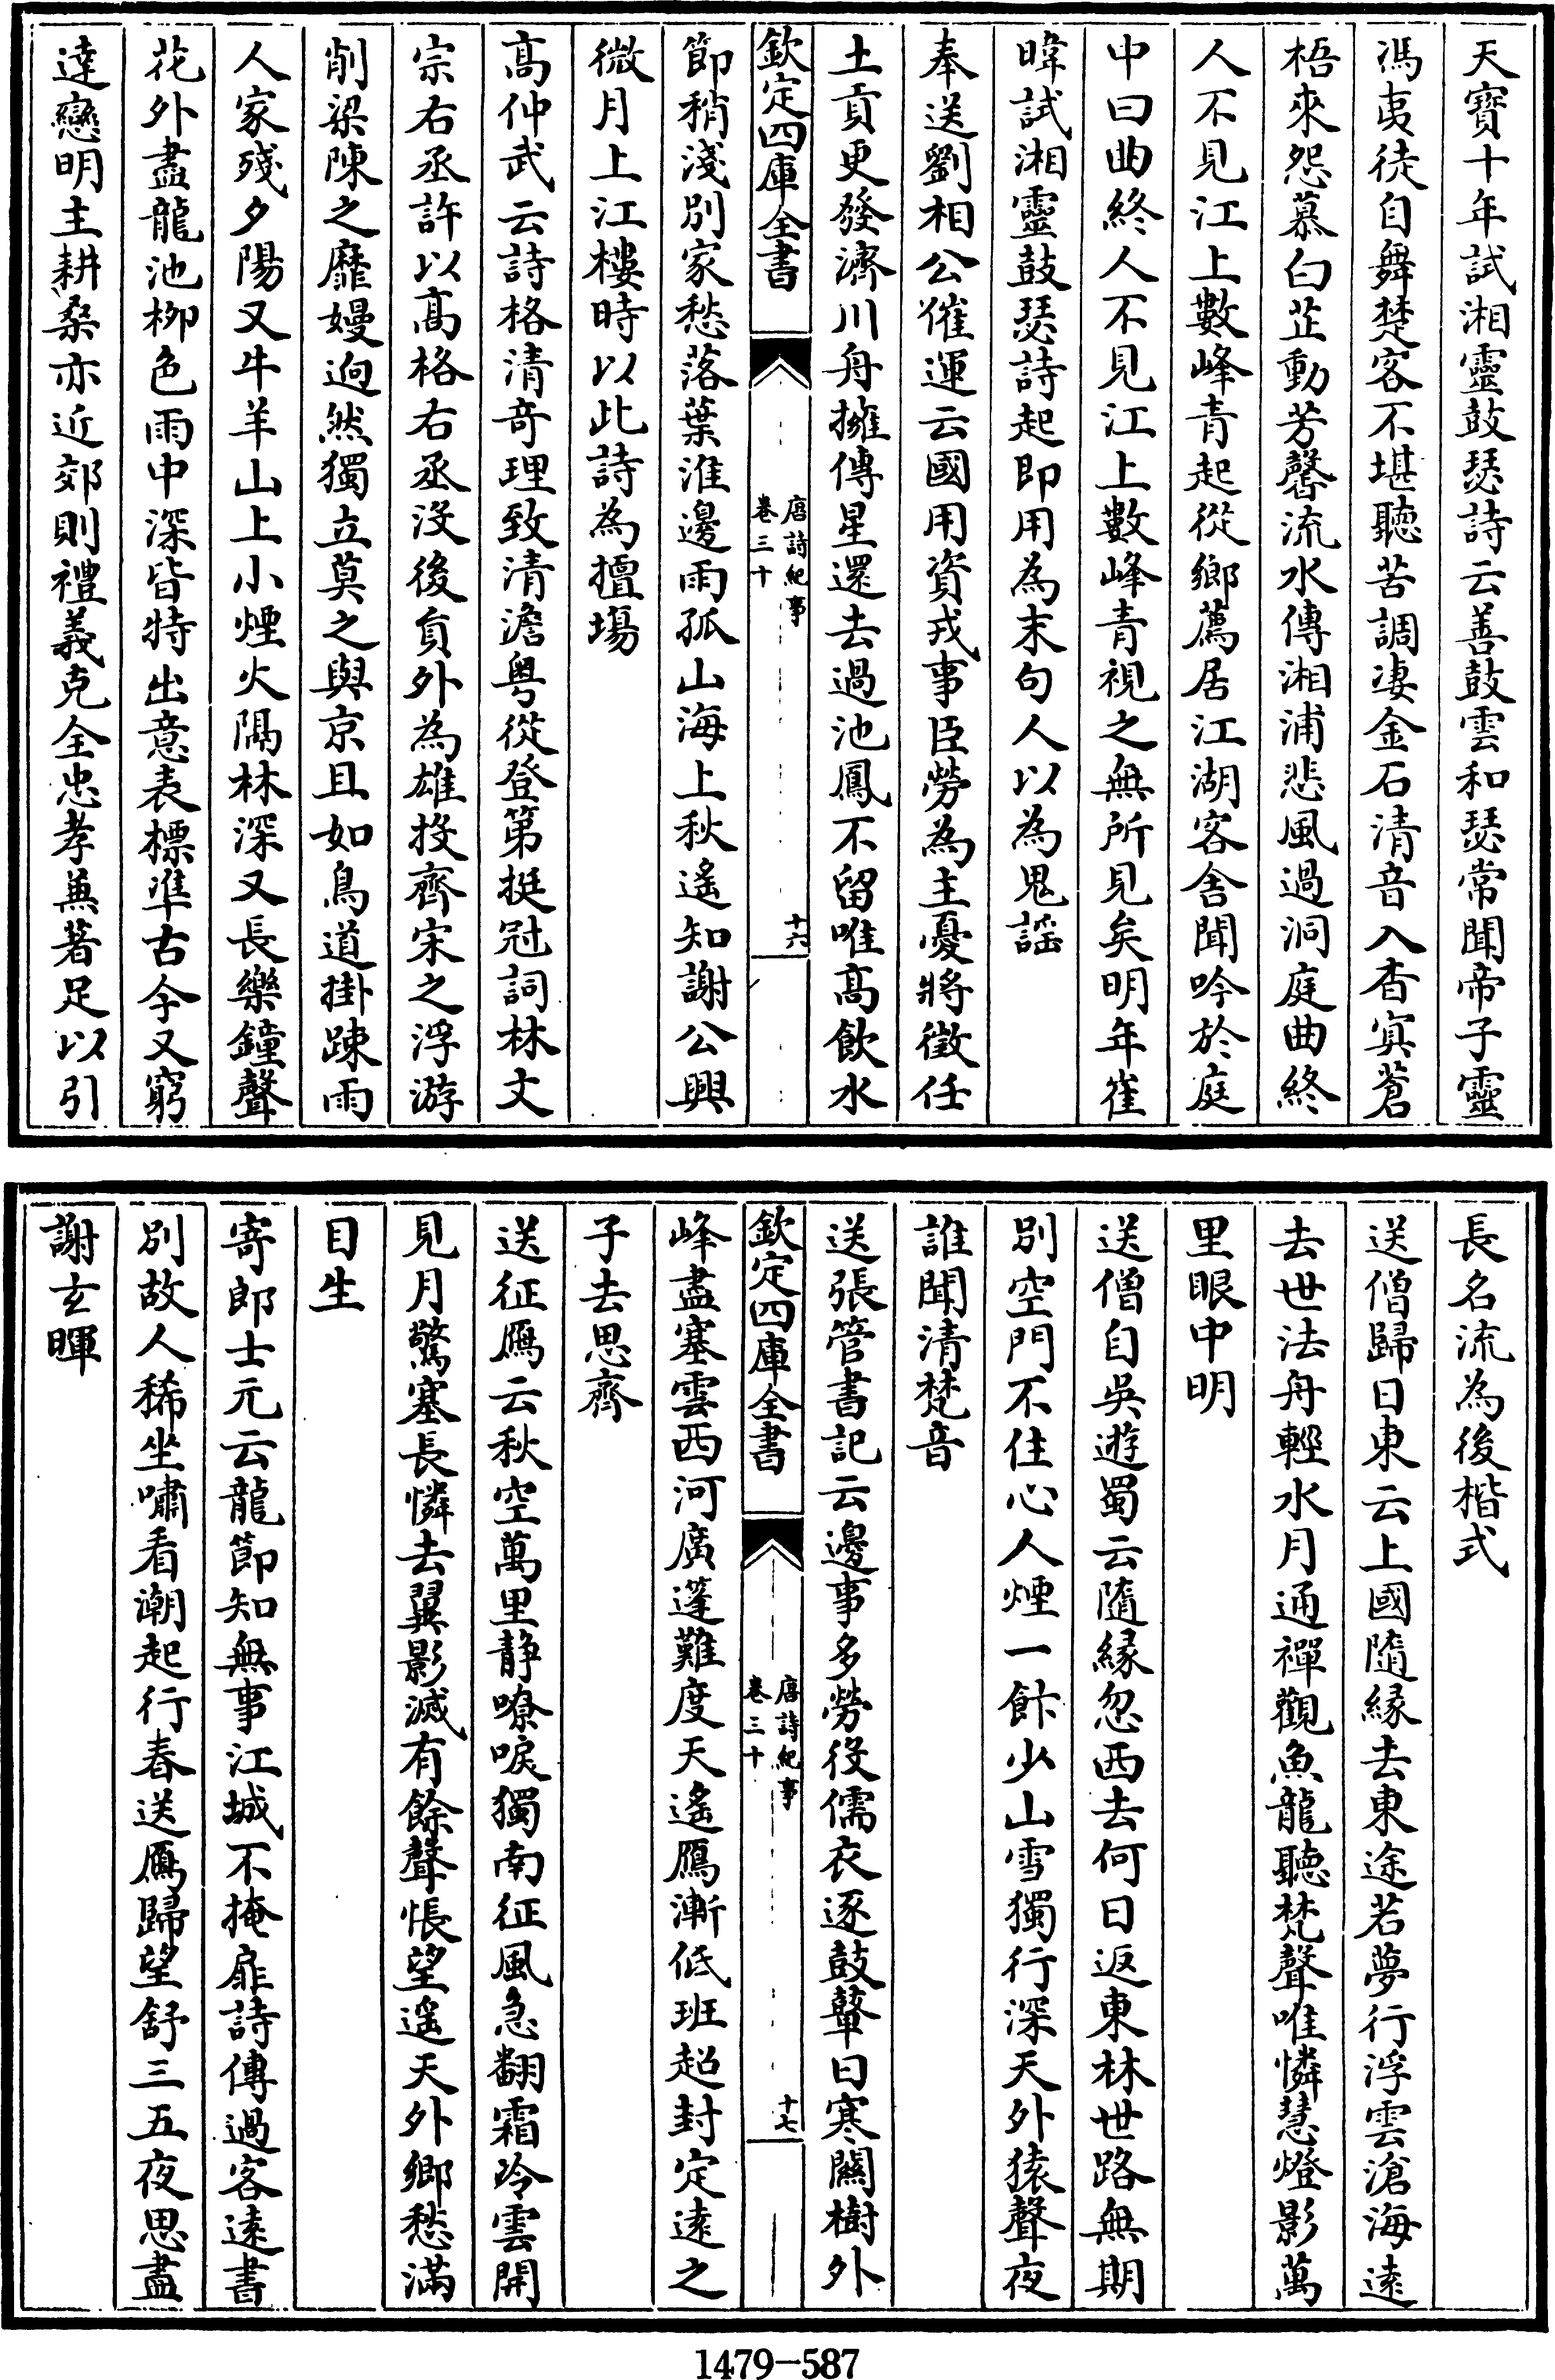 天寶十年試湘靈鼓瑟詩云善鼓雲和瑟常聞帝子靈
馮夷徒自舞楚客不堪聽苦調凄金石清音入杳冥蒼
梧來怨慕白芷動芳馨流水傳湘浦悲風過洞庭曲終
人不見江上數峰青起從鄉薦居江湖客舍聞吟於庭
中曰曲終人不見江上數峰青視之無所見矣明年崔
暐試湘靈鼓瑟詩起即用為末句人以為鬼謡
奉送劉相公催運云國用資戎事臣勞為主憂將徵任
土貢更發濟川舟擁傳星還去過池鳳不留唯高飲水
欽定四庫全書
唐詩紀事
卷三十
十六
節稍淺別家愁落葉淮邊雨孤山海上秋遙知謝公興
微月上江樓時以此詩為擅場
高仲武云詩格清奇理致清澹粤從登第挺冠詞林文
宗右丞許以高格右丞没後員外為雄投齊宋之浮游
削梁陳之靡嫚逈然獨立莫之與京且如鳥道掛踈雨
人家殘夕陽又牛羊山上小煙火隔林深又長樂鐘聲
花外盡龍池栁色雨中深皆特出意表標準古今又窮
達戀明主耕桑亦近郊則禮義克全忠孝兼著足以引
長名流為後楷式
送僧歸日東云上國隨緣去東途若夢行浮雲滄海逺
去世法舟輕水月通禪觀魚龍聽梵聲唯憐慧燈影萬
里眼中明
送僧自吳遊蜀云隨緣忽西去何日返東林世路無期
別空門不住心人煙一飰少山雪獨行深天外猿聲夜
誰聞清梵音
送張管書記云邊事多勞役儒衣逐鼓鼙日寒關樹外
欽定四庫全書
唐詩紀事
卷三十
十七
峰盡塞雲西河廣蓬難度天遙鴈漸低班超封定逺之
子去思齊
送征鴈云秋空萬里静嘹唳獨南征風急翻霜冷雲開
見月驚塞長憐去翼影滅有餘聲悵望遥天外鄉愁滿
目生
寄郎士元云龍節知無事江城不掩扉詩傳過客逺書
別故人稀坐嘯看潮起行春送鴈歸望舒三五夜思盡
謝玄暉
1479-587